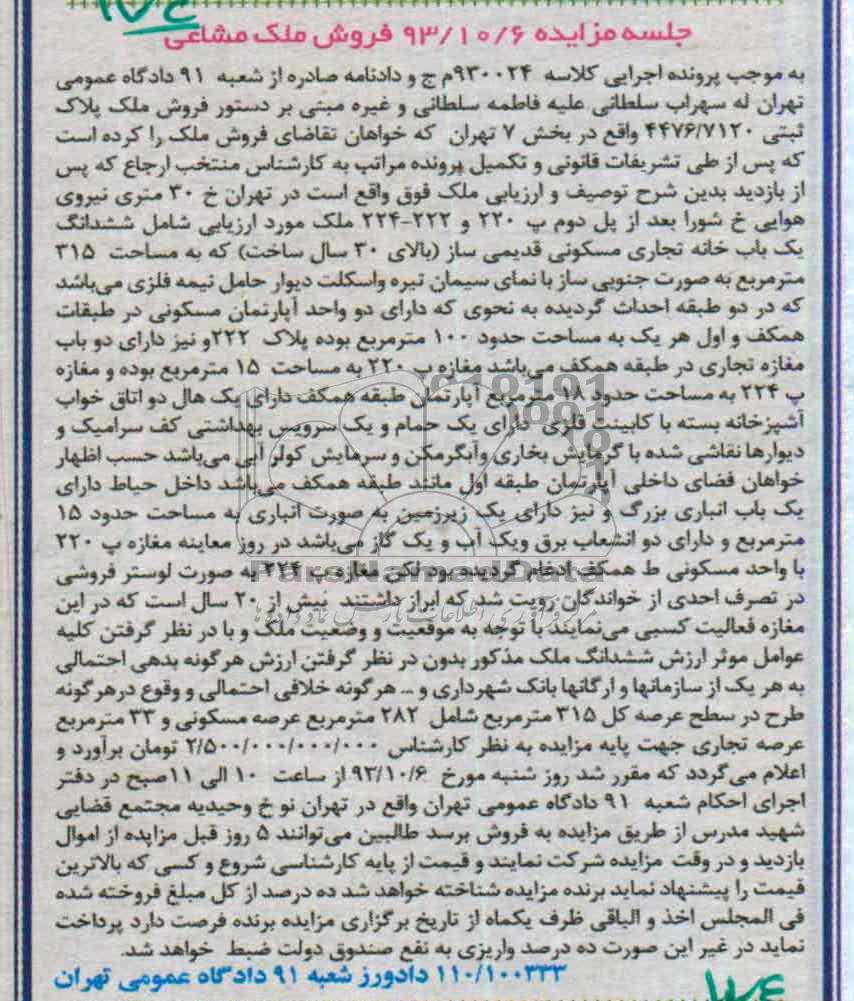 جلسه مزایده ۹۳/۱۰/۶ فروش ملک مشاعی
به موجب پرونده اجرایی کلاسه ۹۳۰۰۲۴م ج و دادنامه صادره از شعبه ۹۱ دادگاه عمومی
تهران له سهراب سلطانی علیه فاطمه سلطانی و غیره مبنی بر دستور فروش ملک پلاک
ثبتی ۴۴۷۶/۷۱۲۰ واقع در بخش ۷ تهران که خواهان تقاضای فروش ملک را کرده است
که پس از طی تشریفات قانونی و تکمیل پرونده مراتب به کارشناس منتخب ارجاع که پس
از بازدید بدین شرح توصیف و ارزیابی ملک فوق واقع است در تهران خ ۳۰ متری نیروی
هوایی خ شورا بعد از پل دوم پ ۲۲۰ و ۲۲۲-۲۲۴ ملک مورد ارزیابی شامل ششدانگ
یک باب خانه تجاری مسکونی قدیمی ساز (بالای ۳۰ سال ساخت) که به مساحت ۳۱۵
مترمربع به صورت جنوبی ساز با نمای سیمان تیره واسکلت دیوار حامل نیمه فلزی می‌باشد
که در دو طبقه احداث گردیده به نحوی که دارای دو واحد آپارتمان مسکونی در طبقات
همکف و اول هر یک به مساحت حدود ۱۰۰ مترمربع بوده پلاک ۲۲۲و نیز دارای دو باب
مغازه تجاری در طبقه همکف می‌باشد مغازه پ ۲۲۰ به مساحت ۱۵ مترمربع بوده و مغازه
پ ۲۲۴ به مساحت حدود ۱۸ مترمربع آپارتمان طبقه همکف دارای یک هال دو اتاق خواب
آشپزخانه بسته با کابینت فلزی دارای یک حمام و یک سرویس بهداشتی کف سرامیک و
دیوارها نقاشی شده با گرمایش بخاری وآبگرمکن و سرمایش کولر آبی می‌باشد حسب اظهار
خواهان فضای داخلی آپارتمان طبقه اول مانند طبقه همکف می‌باشد داخل حیاط دارای
یک باب انباری بزرگ و نیز دارای یک زیرزمین به صورت انباری به مساحت حدود ۱۵
مترمربع و دارای دو انشعاب برق ویک آب و یک گاز می‌باشد در روز معاینه مغازه پ ۲۲۰
با واحد مسکونی ط همکف ادغام گردیده بود لکن مغازه پ ۲۲۴ به صورت لوستر فروشی
در تصرف احدی از خواندگان رویت شد که ابراز داشتند بیش از ۲۰ سال است که در این
مغازه فعالیت کسبی می‌نمایند با توجه به موقعیت و وضعیت ملک و با در نظر گرفتن کلیه
عوامل موثر ارزش ششدانگ ملک مذکور بدون در نظر گرفتن ارزش هرگونه بدهی احتمالی
به هر یک از سازمانها و ارگانها بانک شهرداری و ... هرگونه خلافی احتمالی و وقوع درهرگونه
طرح در سطح عرصه کل ۳۱۵ مترمربع شامل ۲۸۲ مترمربع عرصه مسکونی و ۳۳ مترمربع
عرصه تجاری جهت پایه مزایده به نظر کارشناس ۲/۵۰۰/۰۰۰/۰۰۰/۰۰۰ تومان برآورد و
اعلام می‌گردد که مقرر شد روز شنبه مورخ ۹۳/۱۰/۶ از ساعت ۱۰ الی ۱۱صبح در دفتر
اجرای احکام شعبه ۹۱ دادگاه عمومی تهران واقع در تهران نو خ وحیدیه مجتمع قضایی
شهید مدرس از طریق مزایده به فروش برسد طالبین می‌توانند ۵ روز قبل مزایده از اموال
بازدید و در وقت مزایده شرکت نمایند و قیمت از پایه کارشناسی شروع و کسی که بالاترین
قیمت را پیشنهاد نماید برنده مزایده شناخته خواهد شد ده درصد از کل مبلغ فروخته شده
فی المجلس اخذ و الباقی ظرف یکماه از تاریخ برگزاری مزایده برنده فرصت دارد پرداخت
نماید در غیر این صورت ده درصد واریزی به نفع صندوق دولت ضبط خواهد شد.
۱۱۰/۱۰۰۳۳۳ دادورز شعبه ۹۱ دادگاه عمومی تهران
ParsNamadData